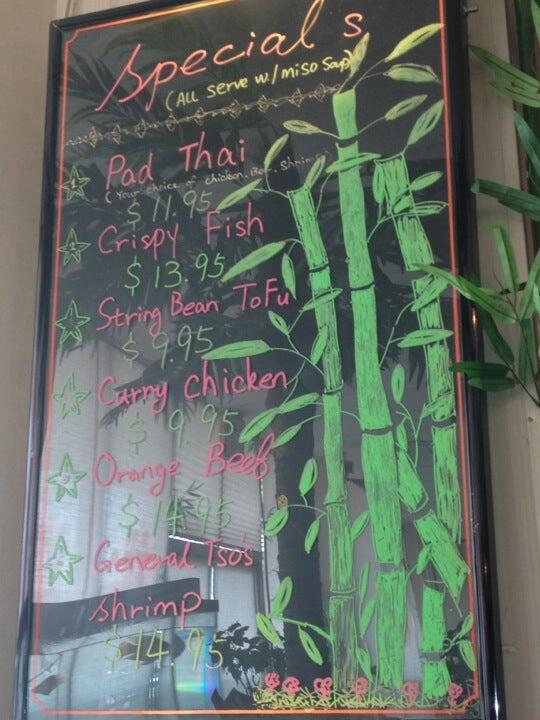 Specials
(ALL Serve w./miso Soup)
Pad Thai
(Your choice of chicken. Beef. Shrimp)
$11.95
Crispy Fish
$13.95
String Bean ToFu
$9.95
Curry chicken
$9.95
Orange Beef
$14.95
General Tso's
shrimp
$14.95